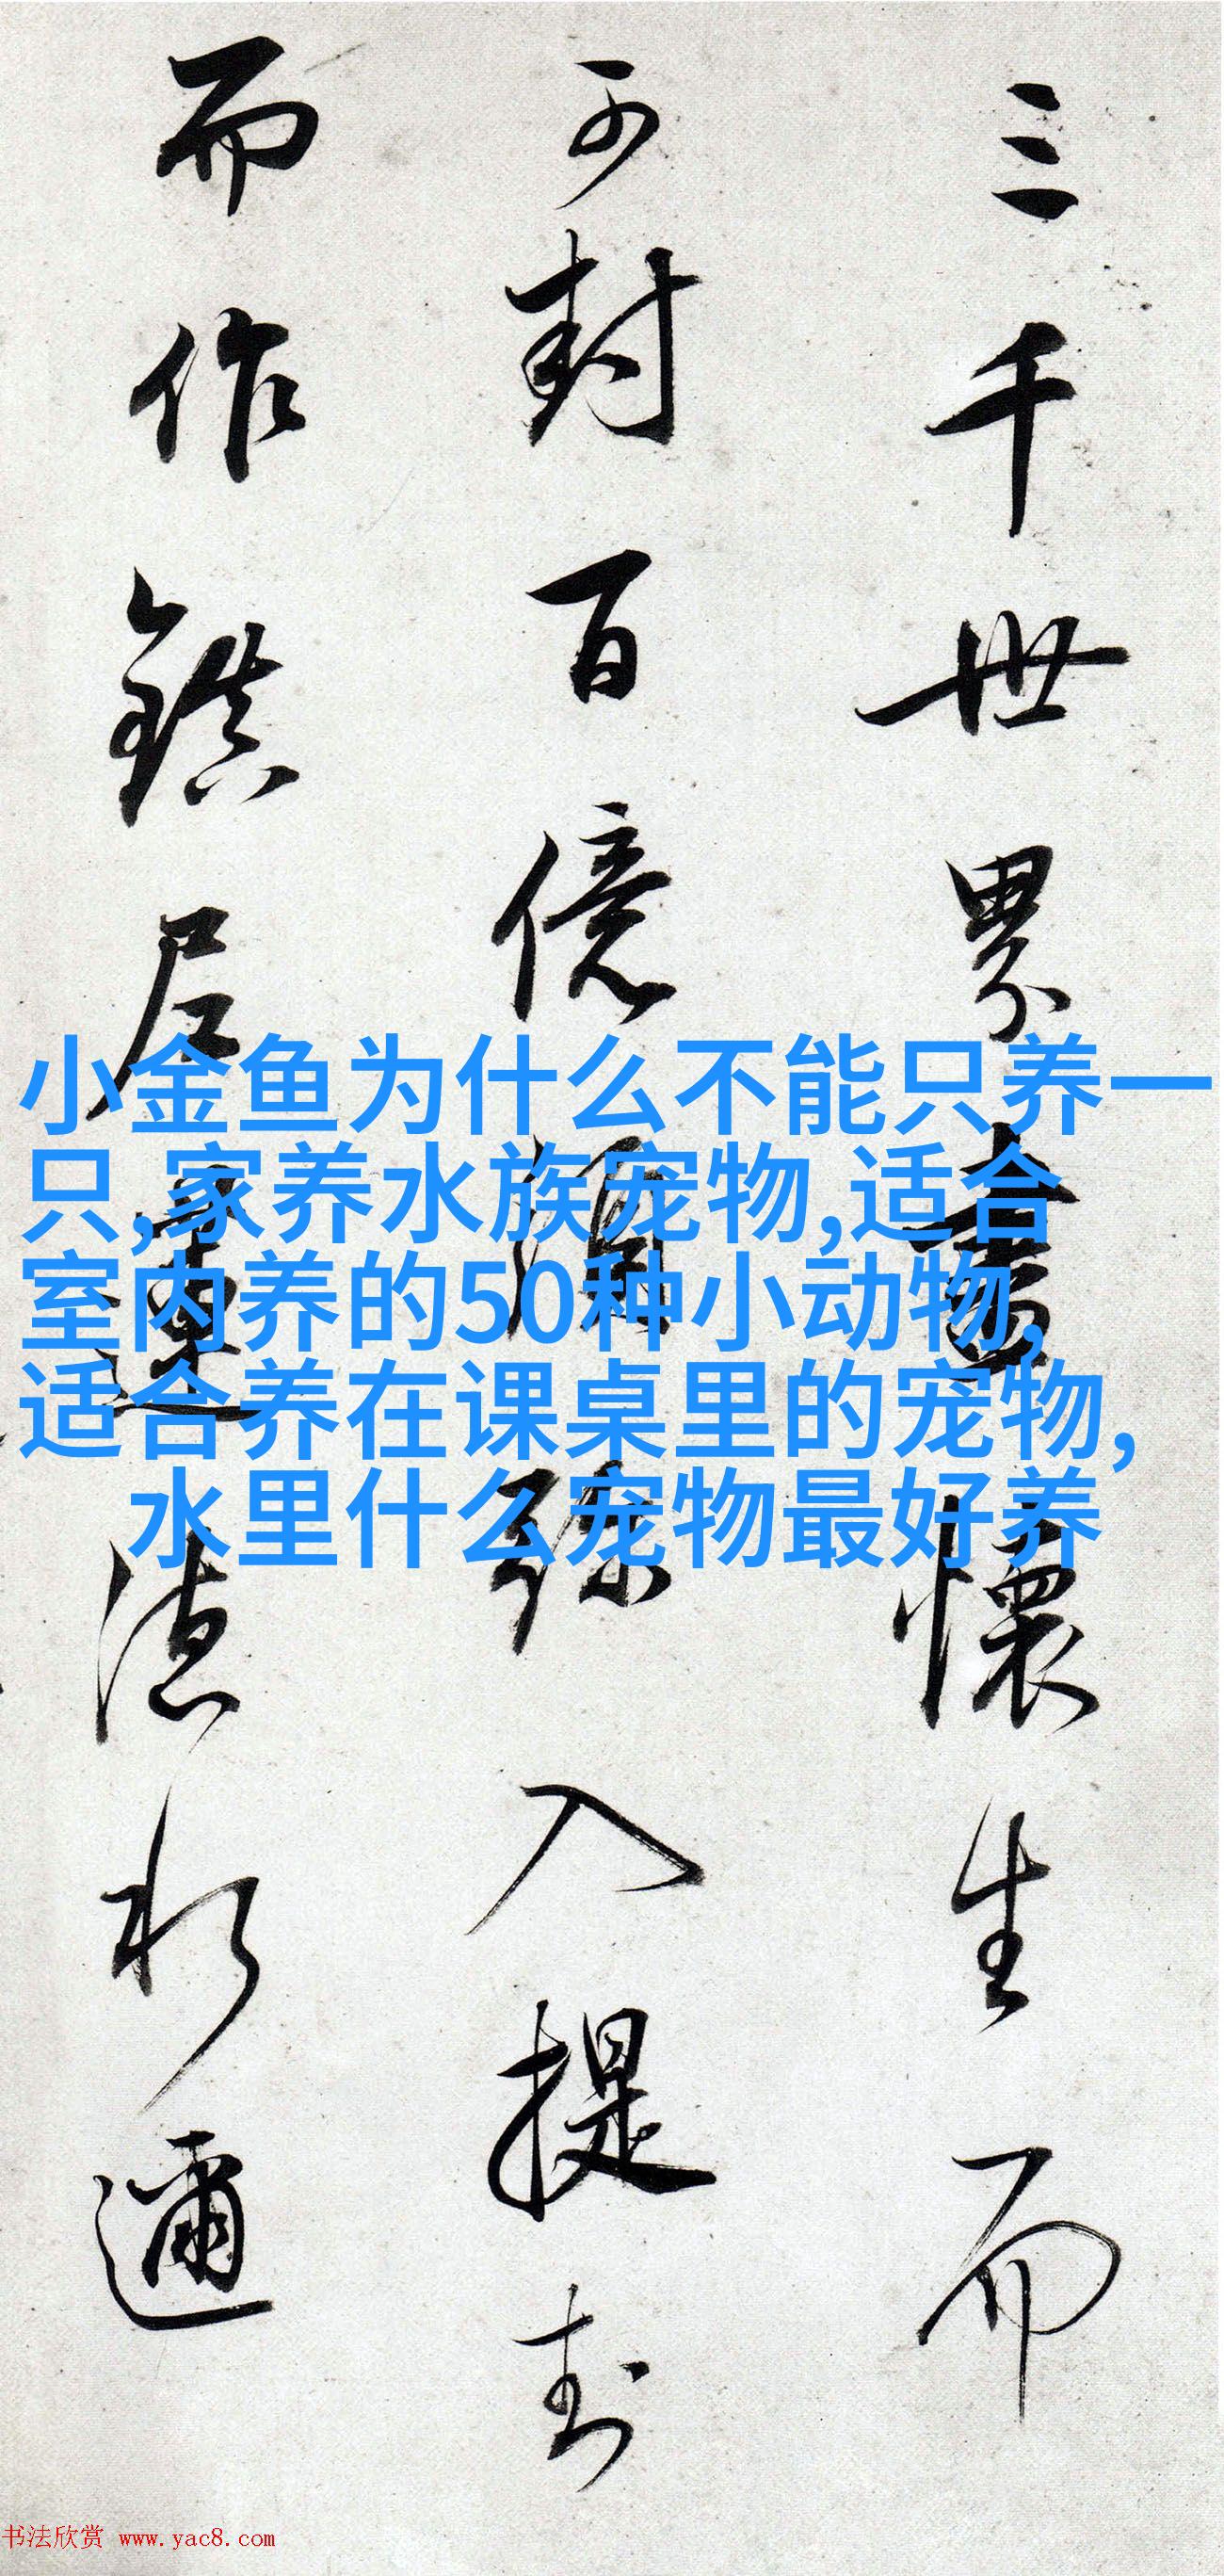 三千世界盡懷生而
可封百億須弥入提封
而作鎮居
德於邇
小金鱼为什么不能只养一
只,家养水族宠物,适合
室内养的50种小动物,
适合养在课桌里的宠物,
水里什么宠物最好养
书法欣赏 www.yac8.com